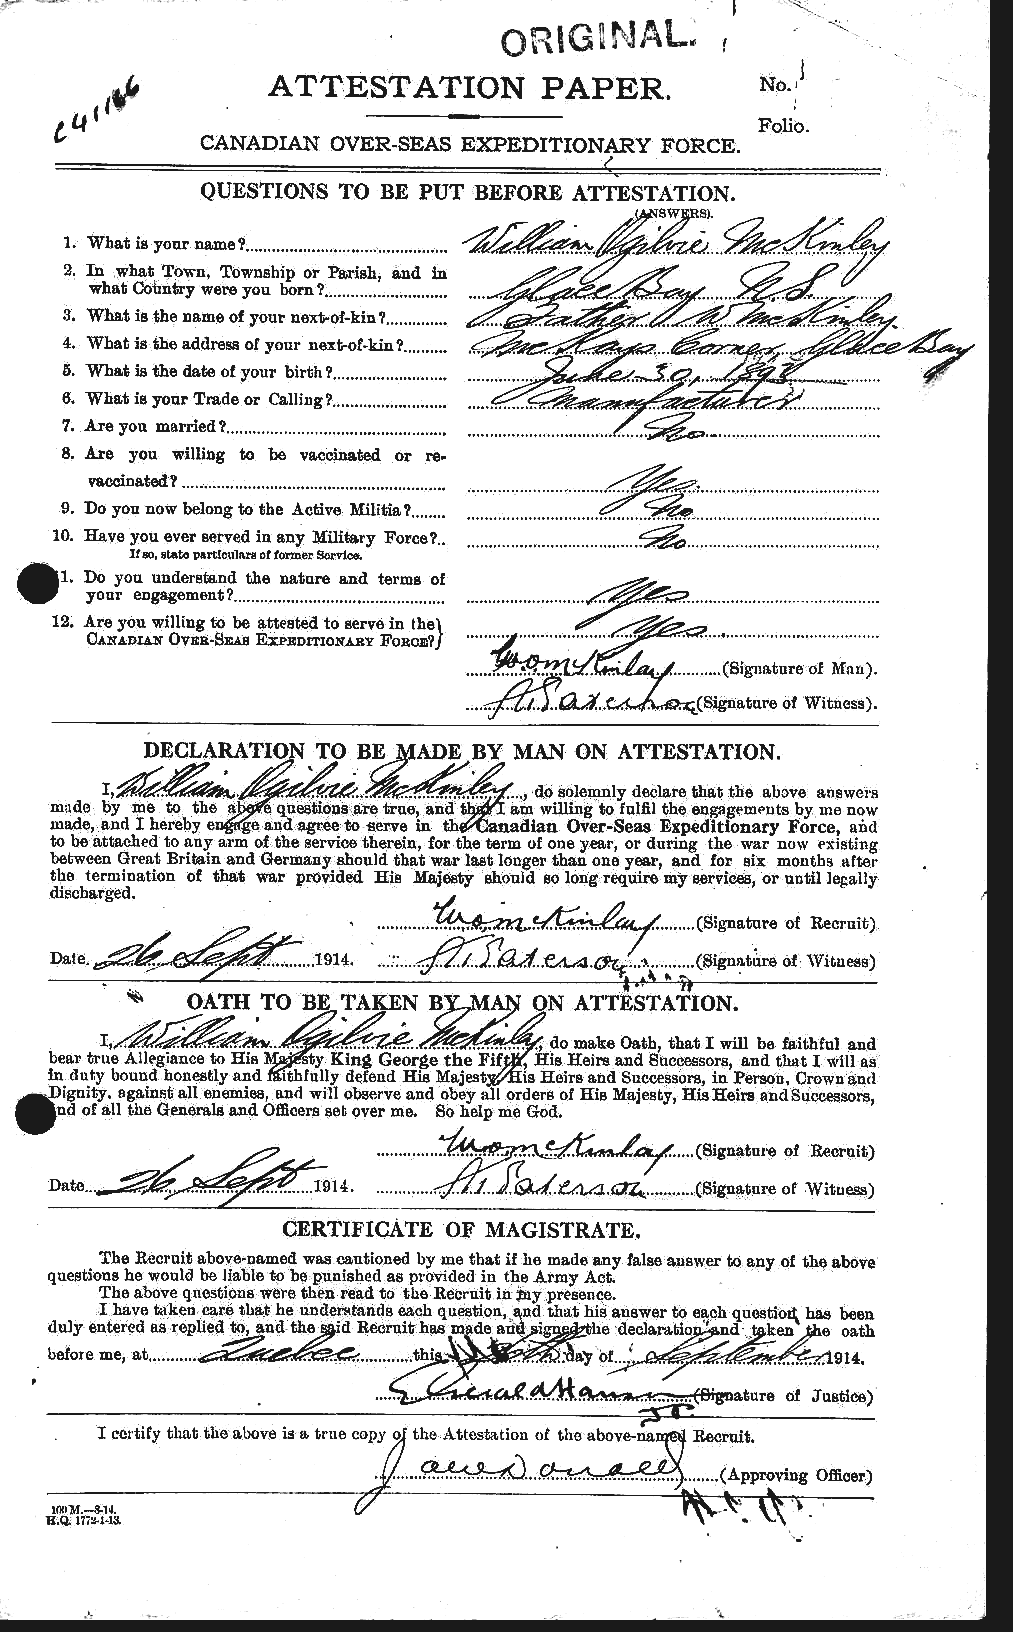 ORIGINAL.
ATTESTATION PAPER.
No.
Folio.
CANADIAN OVER-SEAS EXPEDITIONARY FORCE.
QUESTIONS TO BE PUT BEFORE ATTESTATION.
(ANSWERS).
1. What is your name? William Ogilvie McKinley
2. In what Town, Township or Parish, and in
what Country were you born? Glace Bay N.S.
3. What is the name of your next-of-kin? Father W McKinley
4. What is the address of your next-of-kin? McKays Corner, Glace Bay
5. What is the date of your birth? June 30, 1893
6. What is your Trade or Calling? Manufacturer
7. Are you married? No
8. Are you willing to be vaccinated or re-
vaccinated? Yes.
9. Do you now belong to the Active Militia? No
10. Have you ever served in any Military Force? No
If so, state particulars of former Service.
11. Do you understand the nature and terms of
your engagement? Yes
12. Are you willing to be attested to serve in the
CANADIAN OVER-SEAS EXPEDITIONARY FORCE? Yes.
W.O. McKinlay (Signature of Man).
Paterson (Signature of Witness).
DECLARATION TO BE MADE BY MAN ON ATTESTATION.
I, William Ogilvie McKinley, do solemnly declare that the above answers
made by me to the above questions are true, and that I am willing to fulfil the engagements by me now
made, and I hereby engage and agree to serve in the Canadian Over-Seas Expeditionary Force, and
to be attached to any arm of the service therein, for the term of one year, or during the war now existing
between Great Britain and Germany should that war last longer than one year, and for six months after
the termination of that war provided His Majesty should so long require my services, or until legally
discharged.
W.O. McKinlay (Signature of Recruit)
Date. 26 Sept 1914. Paterson (Signature of Witness)
OATH TO BE TAKEN BY MAN ON ATTESTATION.
I, William Ogilvie McKinley, do make Oath, that I will be faithful and
bear true Allegiance to His Majesty King George the Fifth, His Heirs and Successors, and that I will as
in duty bound honestly and faithfully defend His Majesty, His Heirs and Successors, in Person, Crown and
Dignity, against all enemies, and will observe and obey all orders of His Majesty, His Heirs and Successors,
and of all the Generals and Officers set over me. So help me God.
W.O. McKinlay (Signature of Recruit)
Date 26 Sept 1914. Paterson (Signature of Witness)
CERTIFICATE OF MAGISTRATE.
The Recruit above-named was cautioned by me that if he made any false answer to any of the above
questions he would be liable to be punished as provided in the Army Act.
The above questions were then read to the Recruit in my presence.
I have taken care that he understands each question, and that his answer to each question has been
duly entered as replied to, and the said Recruit has made and signed the declaration and taken the oath
before me, at Quebec this day of September 1914.
(Signature of Justice)
I certify that the above is a true copy of the Attestation of the above-named Recruit.
(Approving Officer)
100 M.—8-14.
H.Q. 1772-1-13.